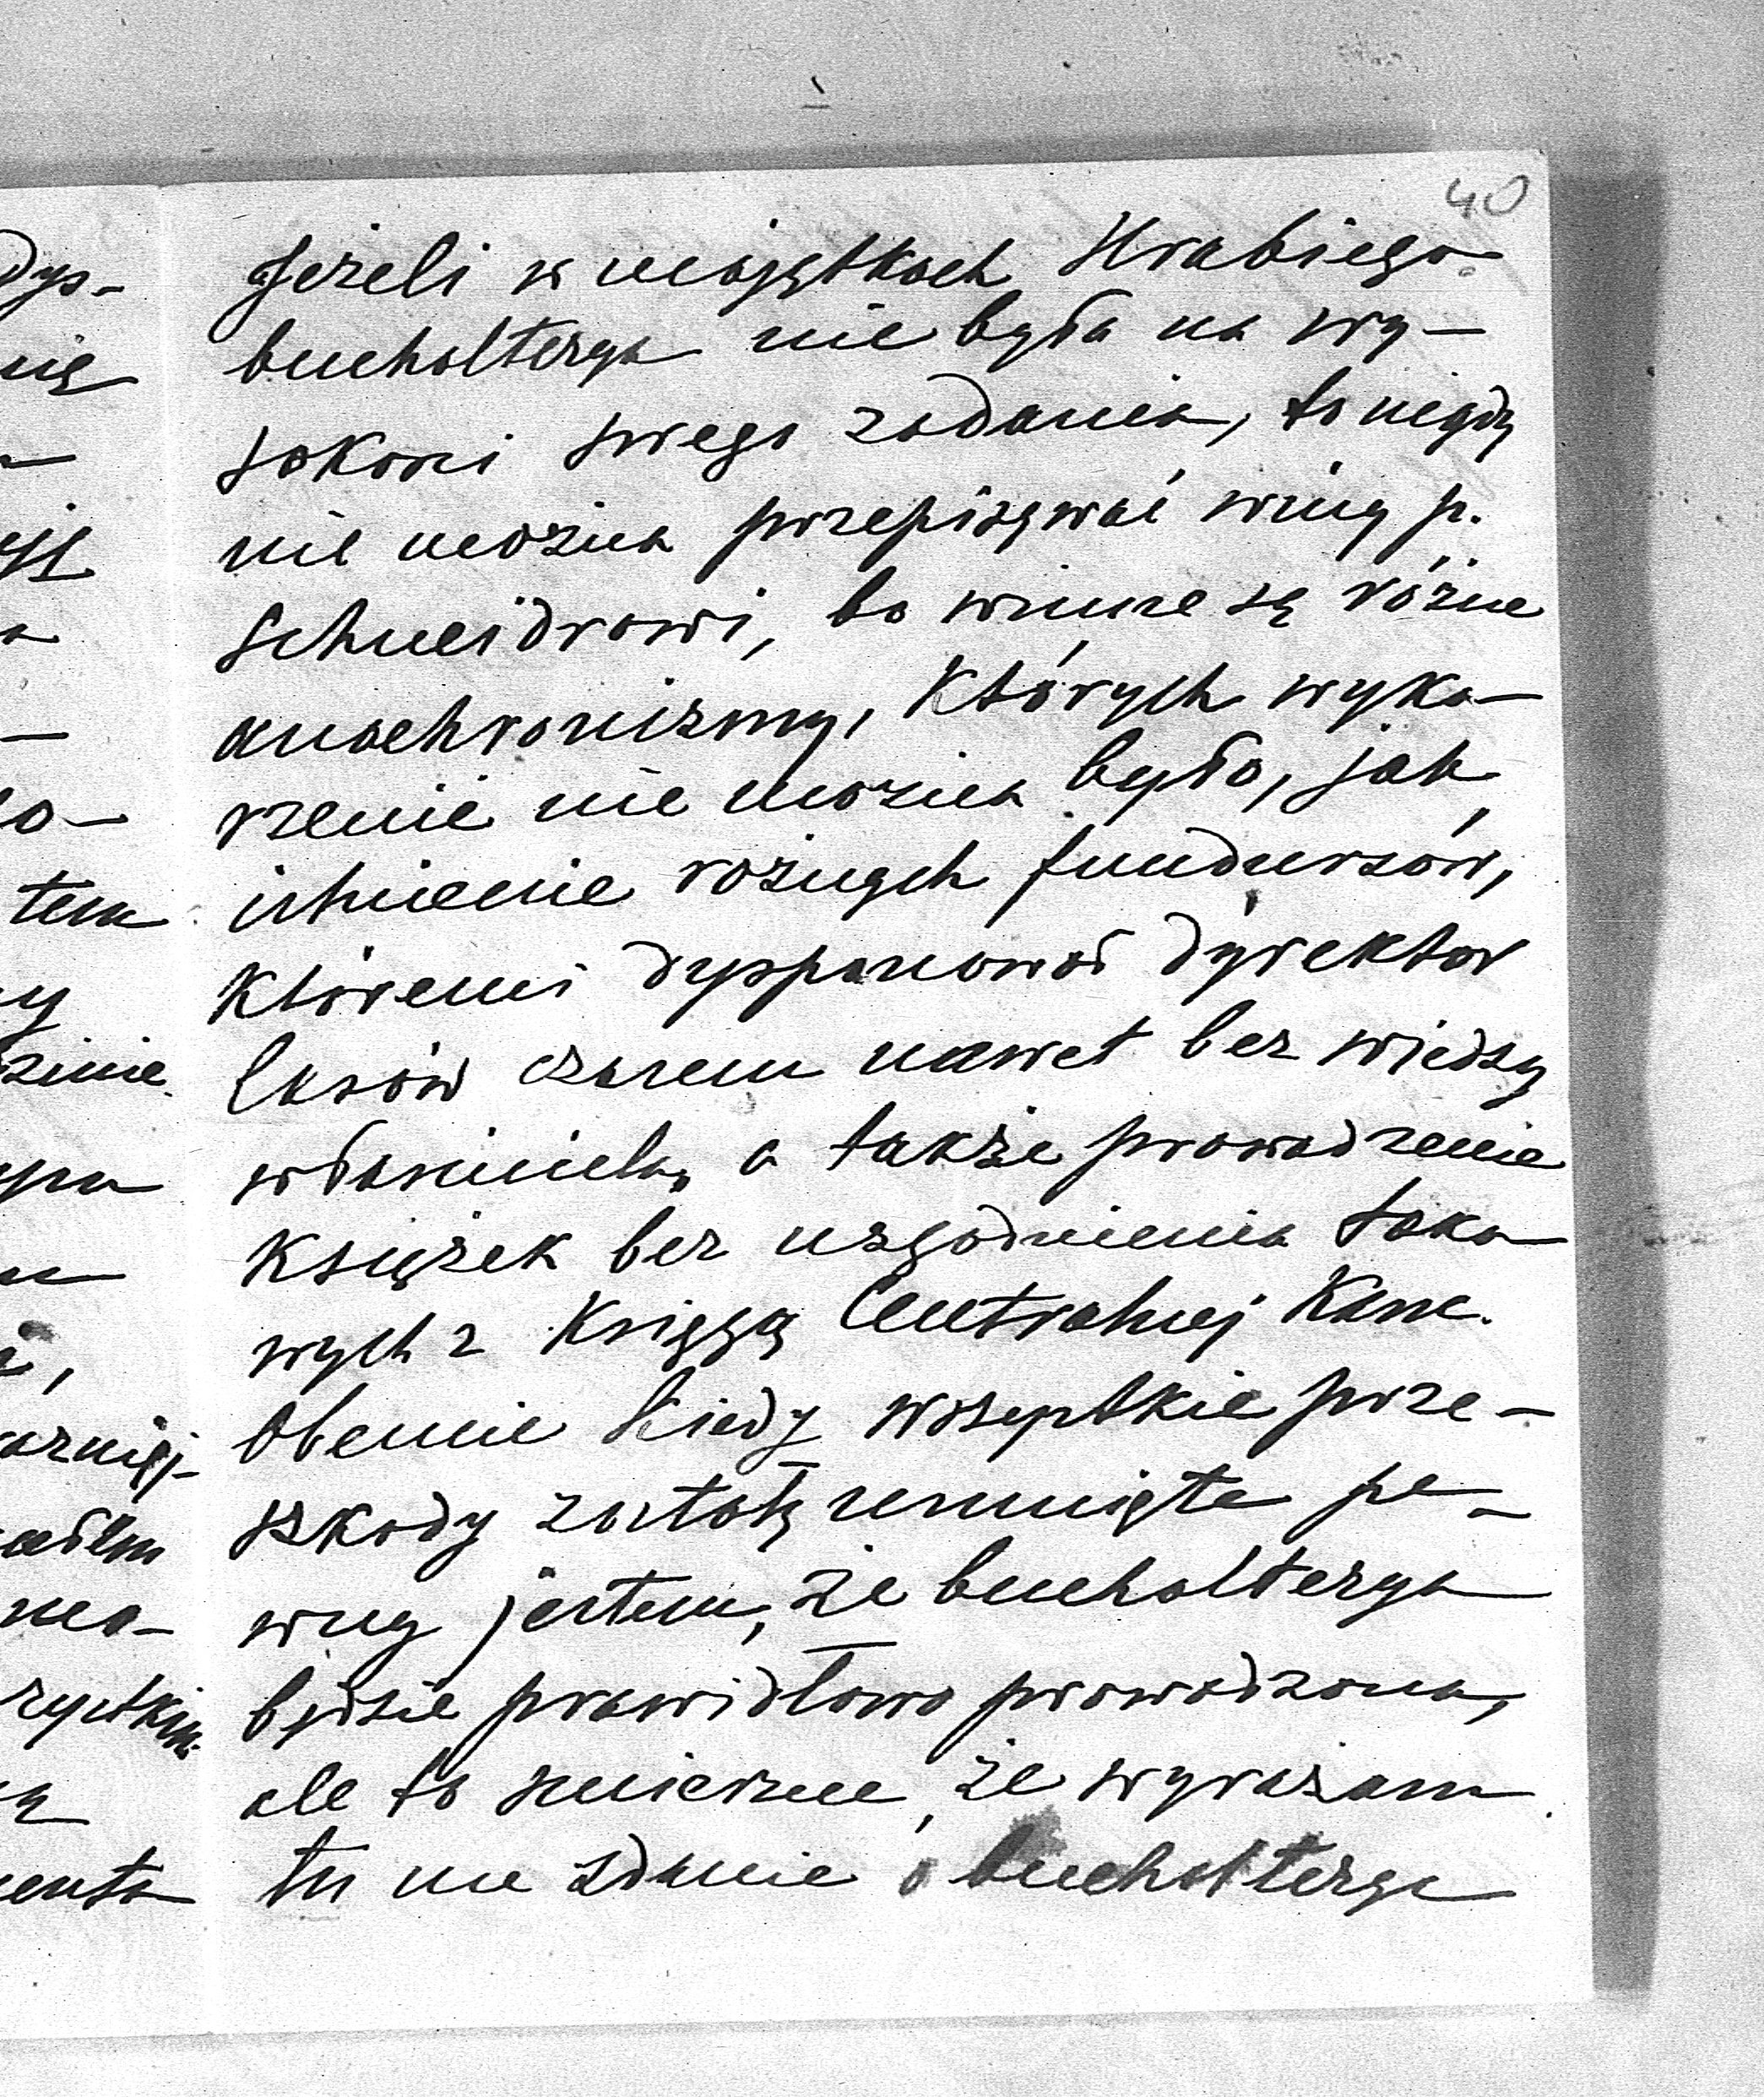 40
Jeżeli w majątkach Hrabiego
bucholterya nie była na wy-
sokości swego zadania, to nigdy
nie można przepisywać winy p.
Schneidrowi, bo winne są różne
anachronizmy, których wyko-
rzenić nie można było, jak
istnienie różnych funduszów,
któremi dysponował dyrektor
lasów czasem nawet bez wiedzy
właściciela, a także prowadzenie
książek bez uzgodnienia tako-
wych z księgą Centralnej Kanc.
Obecnie kiedy wszystkie prze-
szkody zostały usunięte pe-
wny jestem, że bucholterya
będzie prawidłowo prowadzona,
ale to śmieszne, że wyrażam
tu me zdanie o bucholteryi